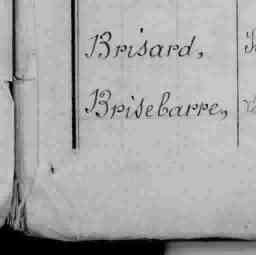 Brisard,
Brisebarre,